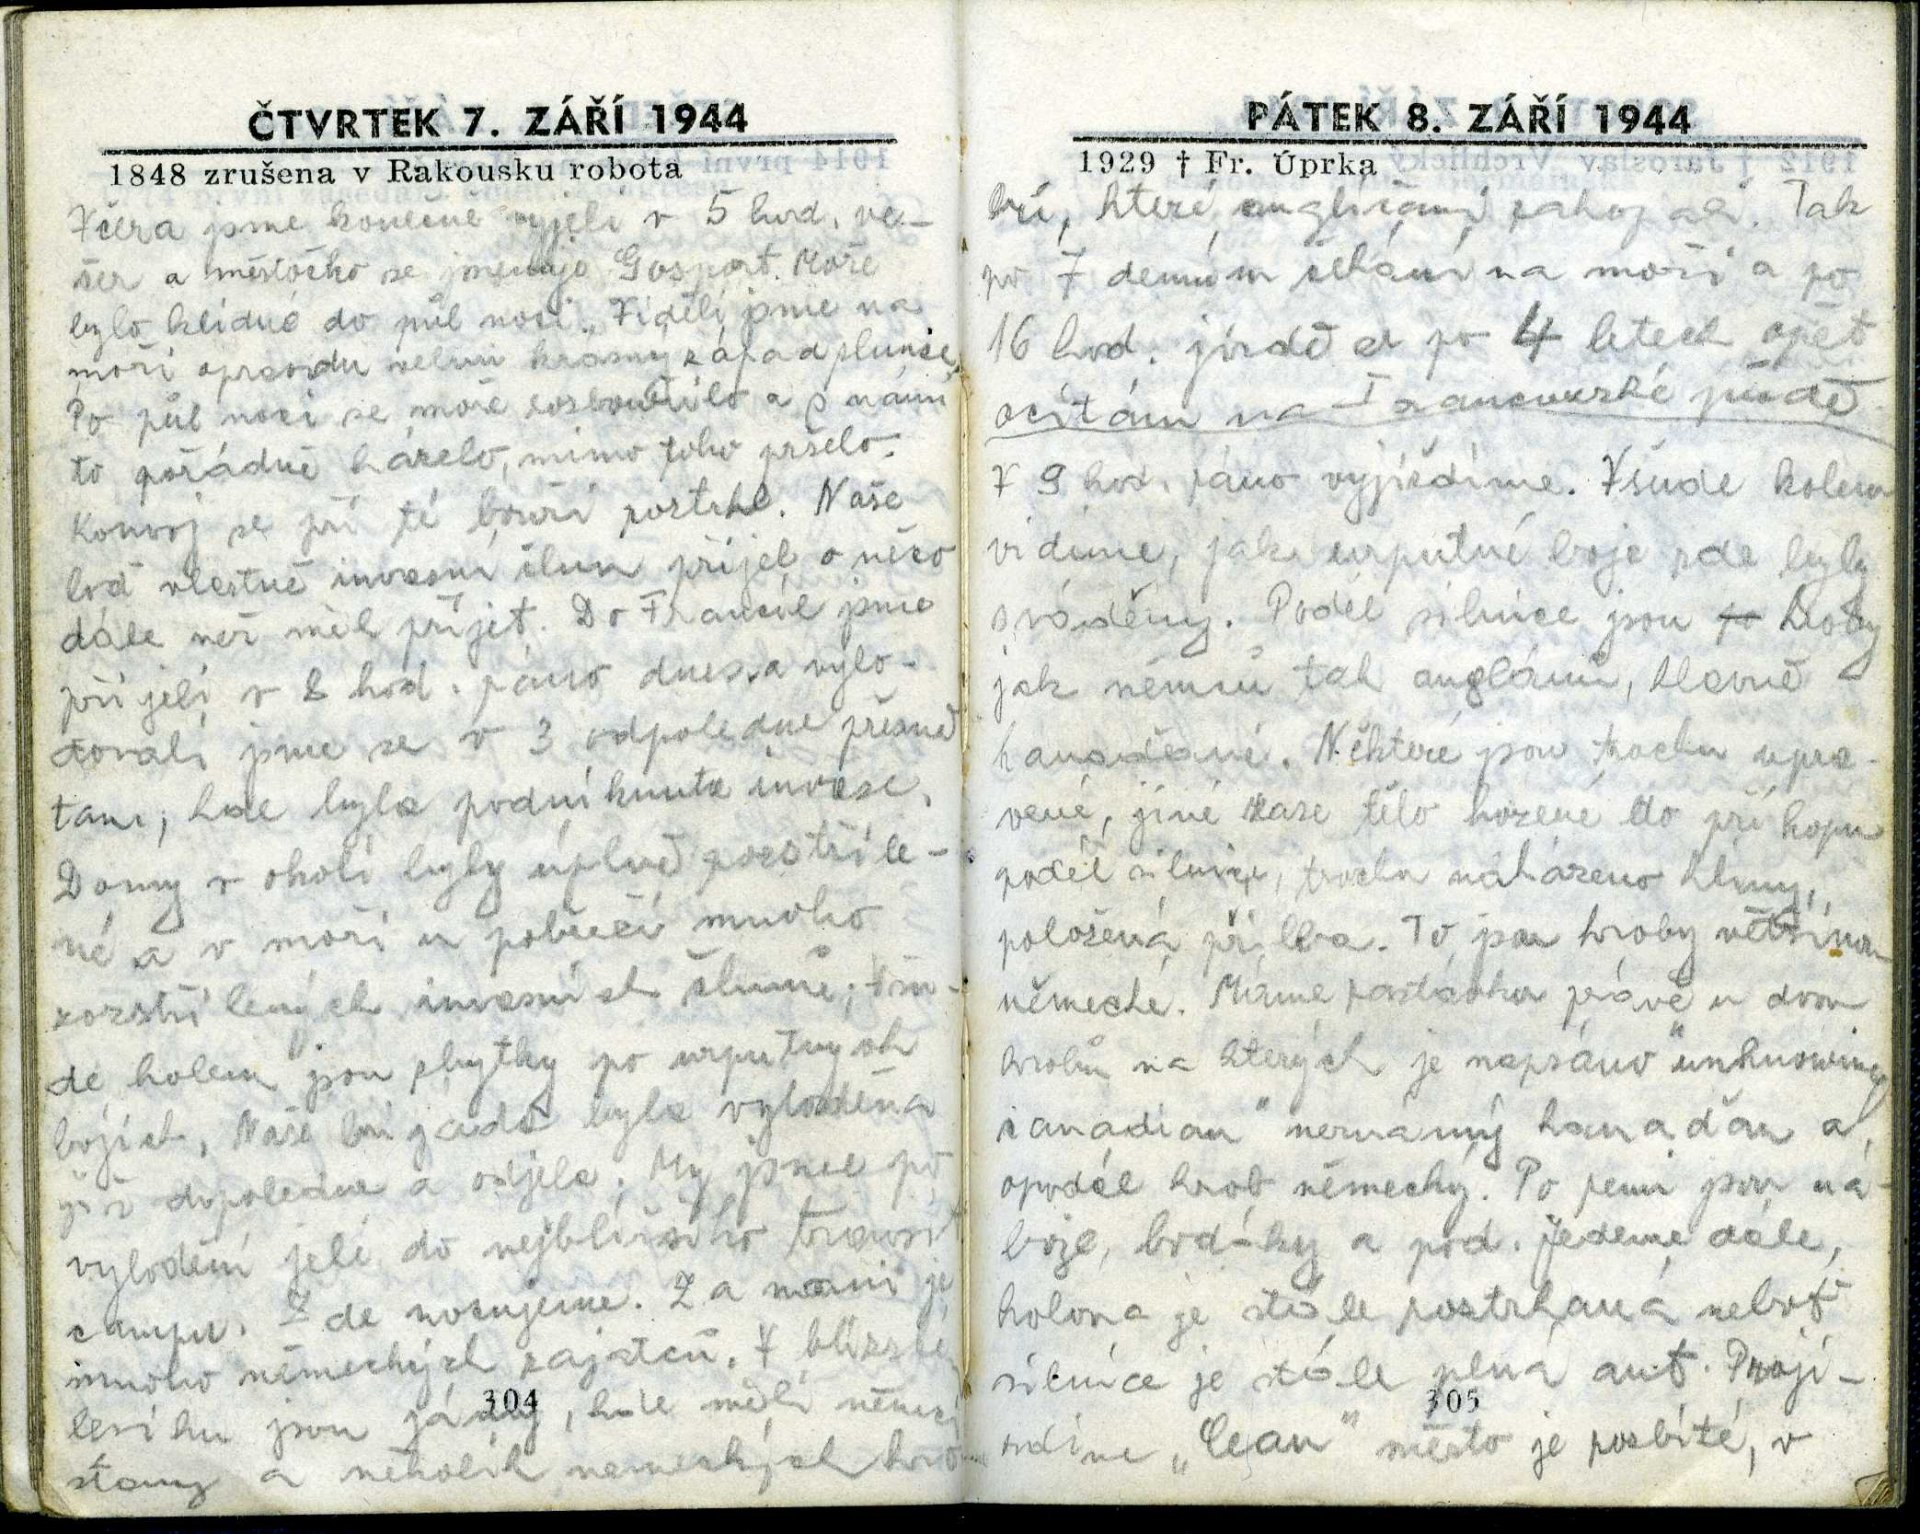 ČTVRTEK 7. ZÁŘÍ 1944
1848 zrušena v Rakousku robota
Včera jsme konečně vyjeli v 5 hod. ve-
čer a městečko se jmenuje Gosport. Moře
bylo klidné do půl noci. Viděli jsme na
moři opravdu velmi krásný západ slunce.
Po půl noci se moře rozbouřilo a s námi
to pořádně házelo, mimo toho pršelo.
Konvoj se při té bouři roztrhl. Naše
loď vlastně invasní člun přijel o něco
dále než měl přijet. Do Francie jsme
přijeli v 8 hod. ráno dnes a vylo-
dovali jsme se v 3 odpoledne přesně
tam, kde byla podniknuta invase.
Domy v okolí byly úplně rozstříle-
né a v moři u pobřeží mnoho
rozstřílených invasních člunů, všu-
de kolem jsou zbytky po urputných
bojích. Naše brigáda byla vyloděna
již dopoledne a odjela. My jsme po
vylodění jeli do nejbližšího transit
campu. Zde nocujeme. Za námi je
mnoho německých zajatců. V blízské
lesíku jsou jámy, kde měli němci
stany a několik nemeckých hro-
304
PÁTEK 8. ZÁŘÍ 1944
1929 † Fr. Úprka
bů, které angličani zakopali. Tak
po 7 denním čekání na moři a po
16 hod. jízdě a po 4 letech opět
ocitám na Francouzské půdě
V 9 hod. ráno vyjíždíme. Všude kolem
vidíme, jak urputné boje zde byly
sváděny. Podél silnice jsou hroby
jak němců tak angláni, hlavně
kanaďané. Některé jsou trochu upra-
vené, jiné zase tělo hozené do příkopu
podél silnice, trochu naházeno hlíny,
položená přilba. To jsou hroby většinou
německé. Máme zastávku právě u dvou
hrobů na kterých je napsáno "unknowing
canadian" neznámý kanaďan a
opodál hrob německý. Po zemi jsou ná-
boje, bodáky a pod. Jedeme dále,
kolona je stále roztrhaná neboť
silnice je stále plná aut. Projí-
ždíme „Cean" město je rozbité, v
305